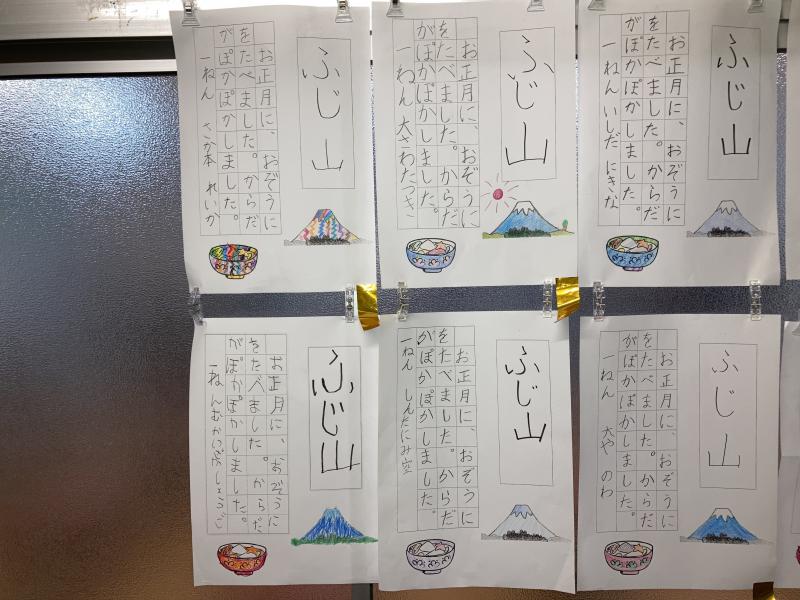 ふじ山
お正月に、おぞうに
をたべました。からだ
がぽかぽかしました。
一ねん さか本 れいか
ふじ山
お正月に、おぞうに
をたべました。からだ
がぽかぽかしました。
一ねん 大さわたつき
ふじ山
お正月に、おぞうに
をたべました。からだ
がぽかぽかしました。
一ねん いしだ にきな
ふじ山
お正月に、おぞうに
をたべました。からだ
がぽかぽかしました。
一ねん しょうご
ふじ山
お正月に、おぞうに
をたべました。からだ
がぽかぽかしました。
一ねん しんだにみ空
ふじ山
お正月に、おぞうに
をたべました。からだ
がぽかぽかしました。
一ねん 大や のわ